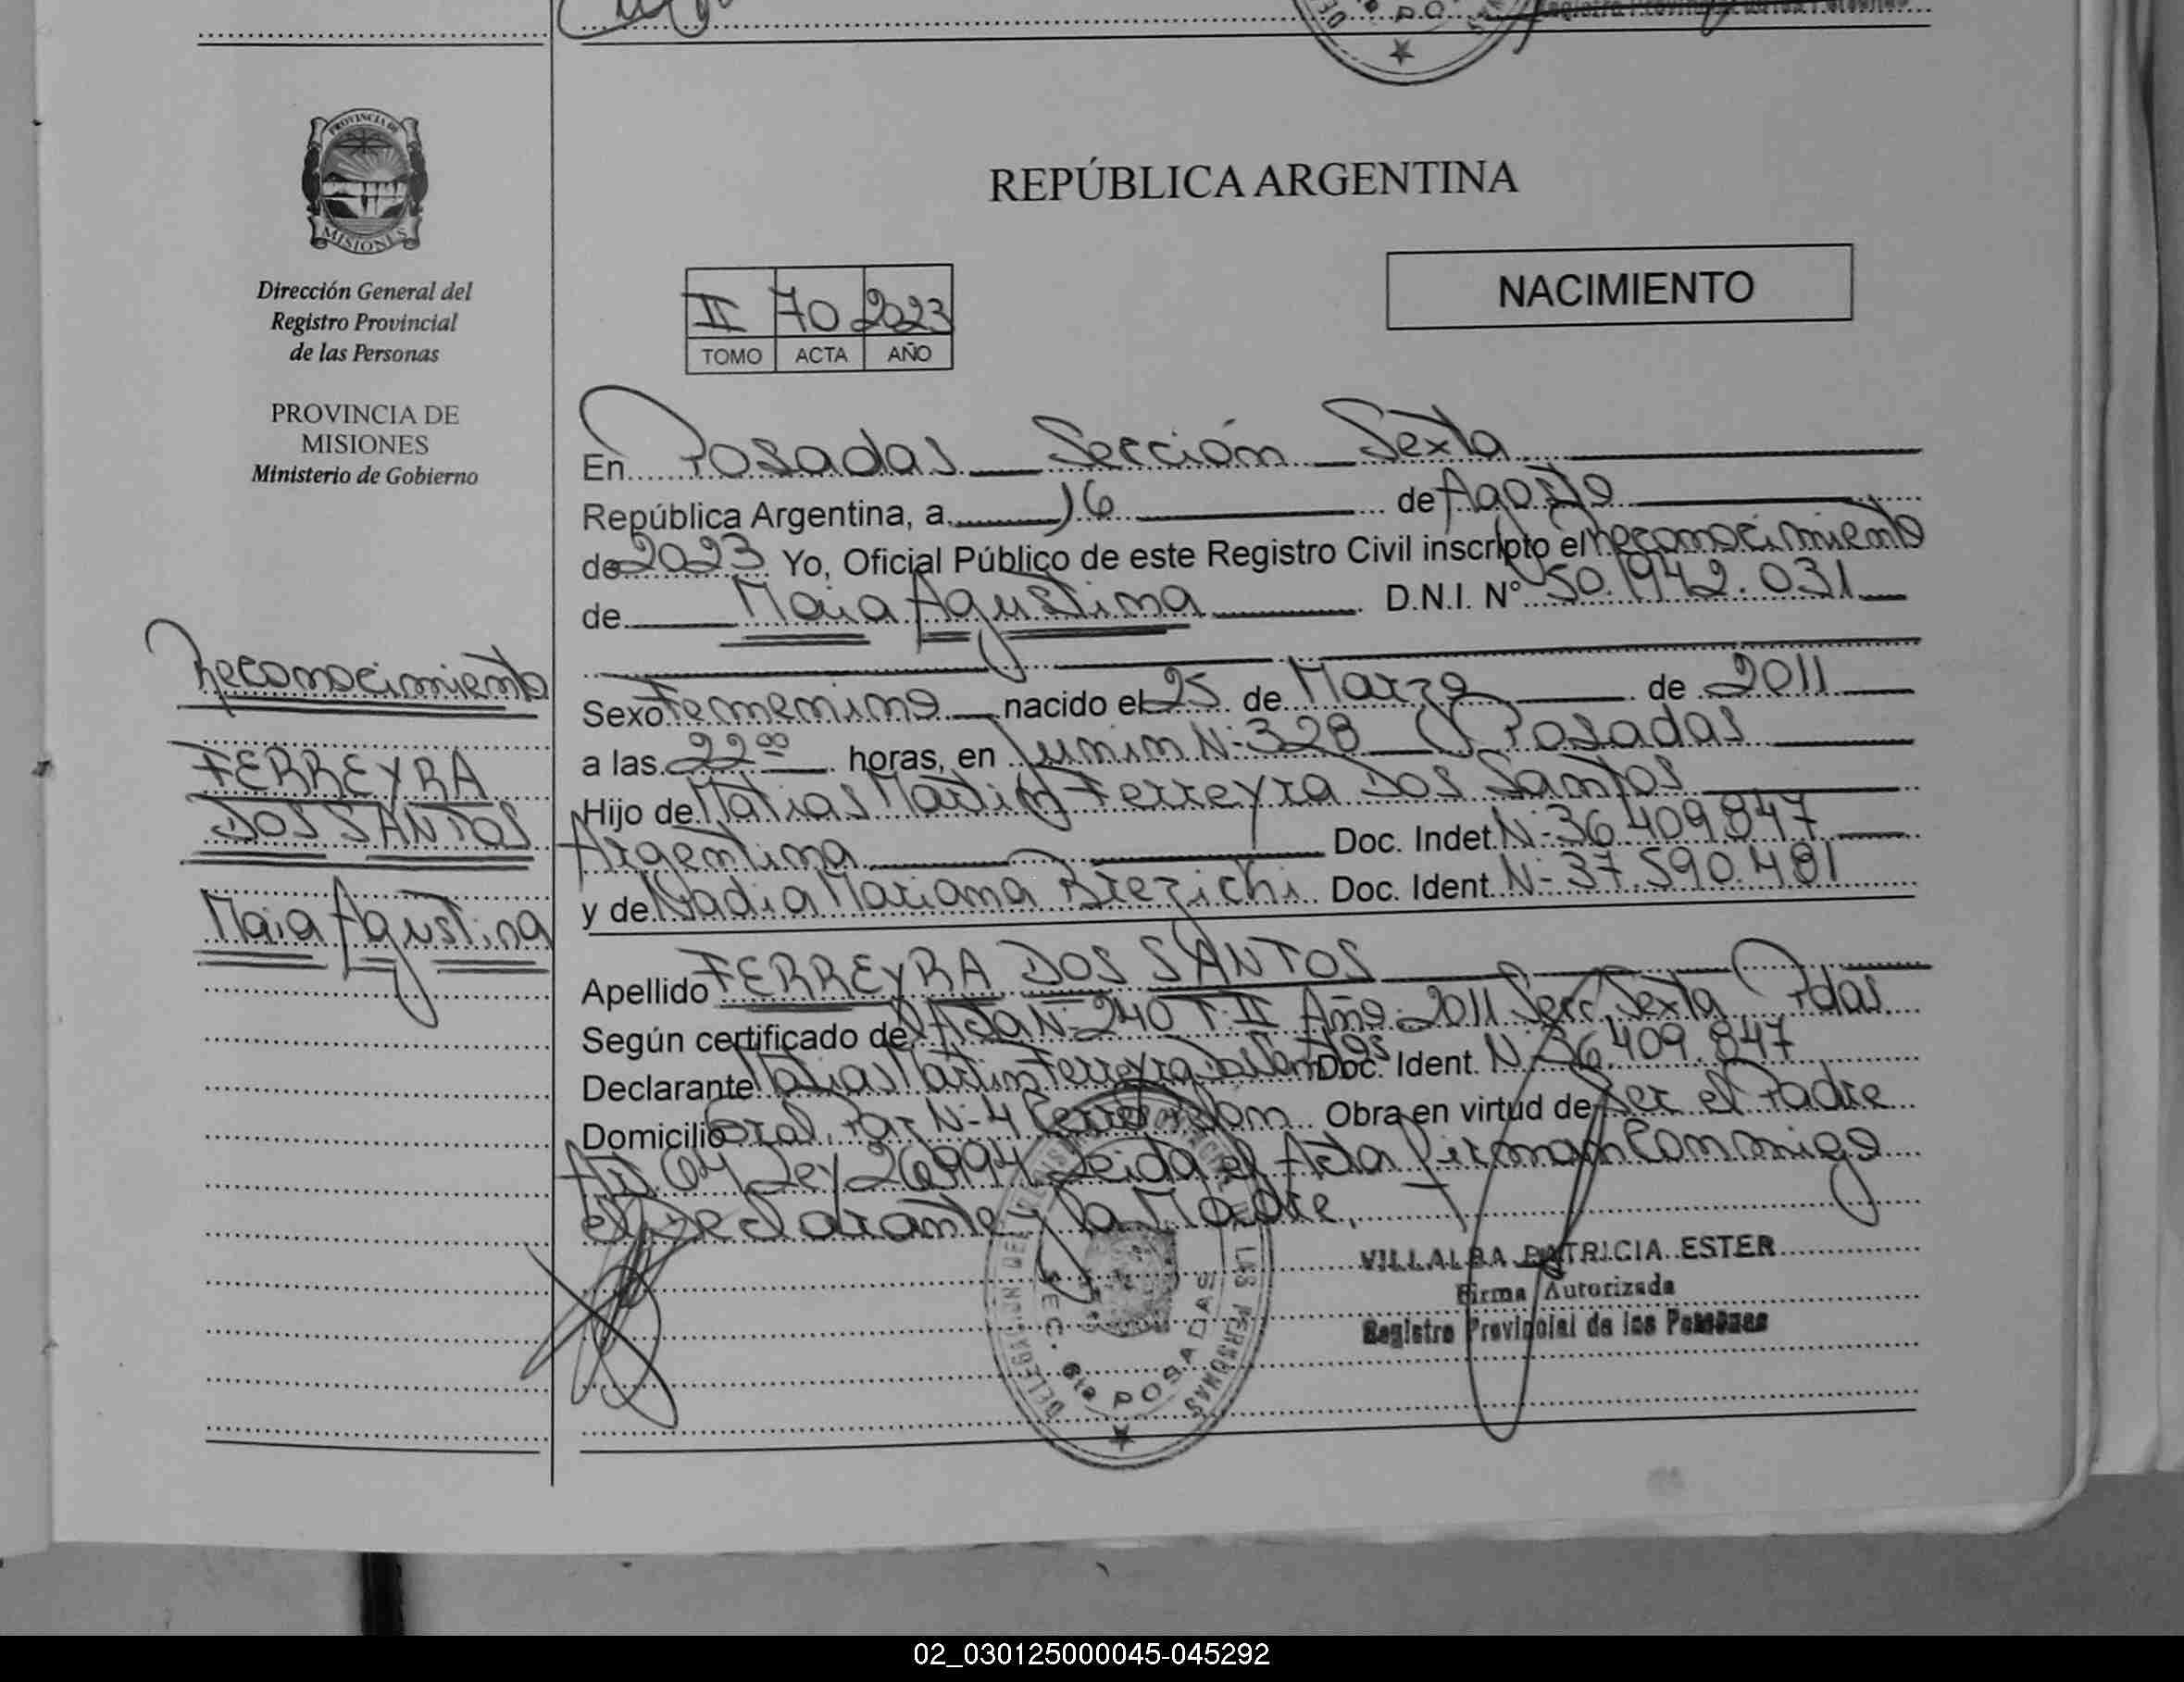 PROVINCIA DE
MISIONES
Dirección General del
Registro Provincial
de las Personas
PROVINCIA DE
MISIONES
Ministerio de Gobierno
Reconocimiento
FERREYRA
DOS SANTOS
Maia Agustina
REPÚBLICA ARGENTINA
NACIMIENTO
II 70 2023
TOMO ACTA AÑO
En Posadas Sección Sexta
República Argentina, a 16 de Agosto
de 2023 Yo, Oficial Público de este Registro Civil inscripto el Reconocimiento
de Maia Agustina D.N.I. N° 50.942.031
Sexo Femenino nacido el 25 de Marzo de 2011
a las 22 00 horas, en Junin N: 328 Posadas
Hijo de Matias Martin Ferreyra Dos Santos
Argentina Doc. Indet. N: 36.409.847
y de Nadia Mariana Brezichi Doc. Ident. N: 37.590.481
Apellido FERREYRA DOS SANTOS
Según certificado de Acta N: 240 T: II Año: 2011 Secc. Sexta Pdas
Declarante Matias Martin Ferreyra Dos Santos Doc. Ident. N: 36.409.847
Domicilio Gral. Paz N: 4 Obra en virtud de Ser el Padre
Art. 64 Ley 26994 Leida el Acta Firman Conmigo
el Declarante y la Madre.
VILLALBA PATRICIA ESTER
Firma Autorizada
Registro Provincial de las Personas
SEC. 6ta POSADAS
02_030125000045-045292